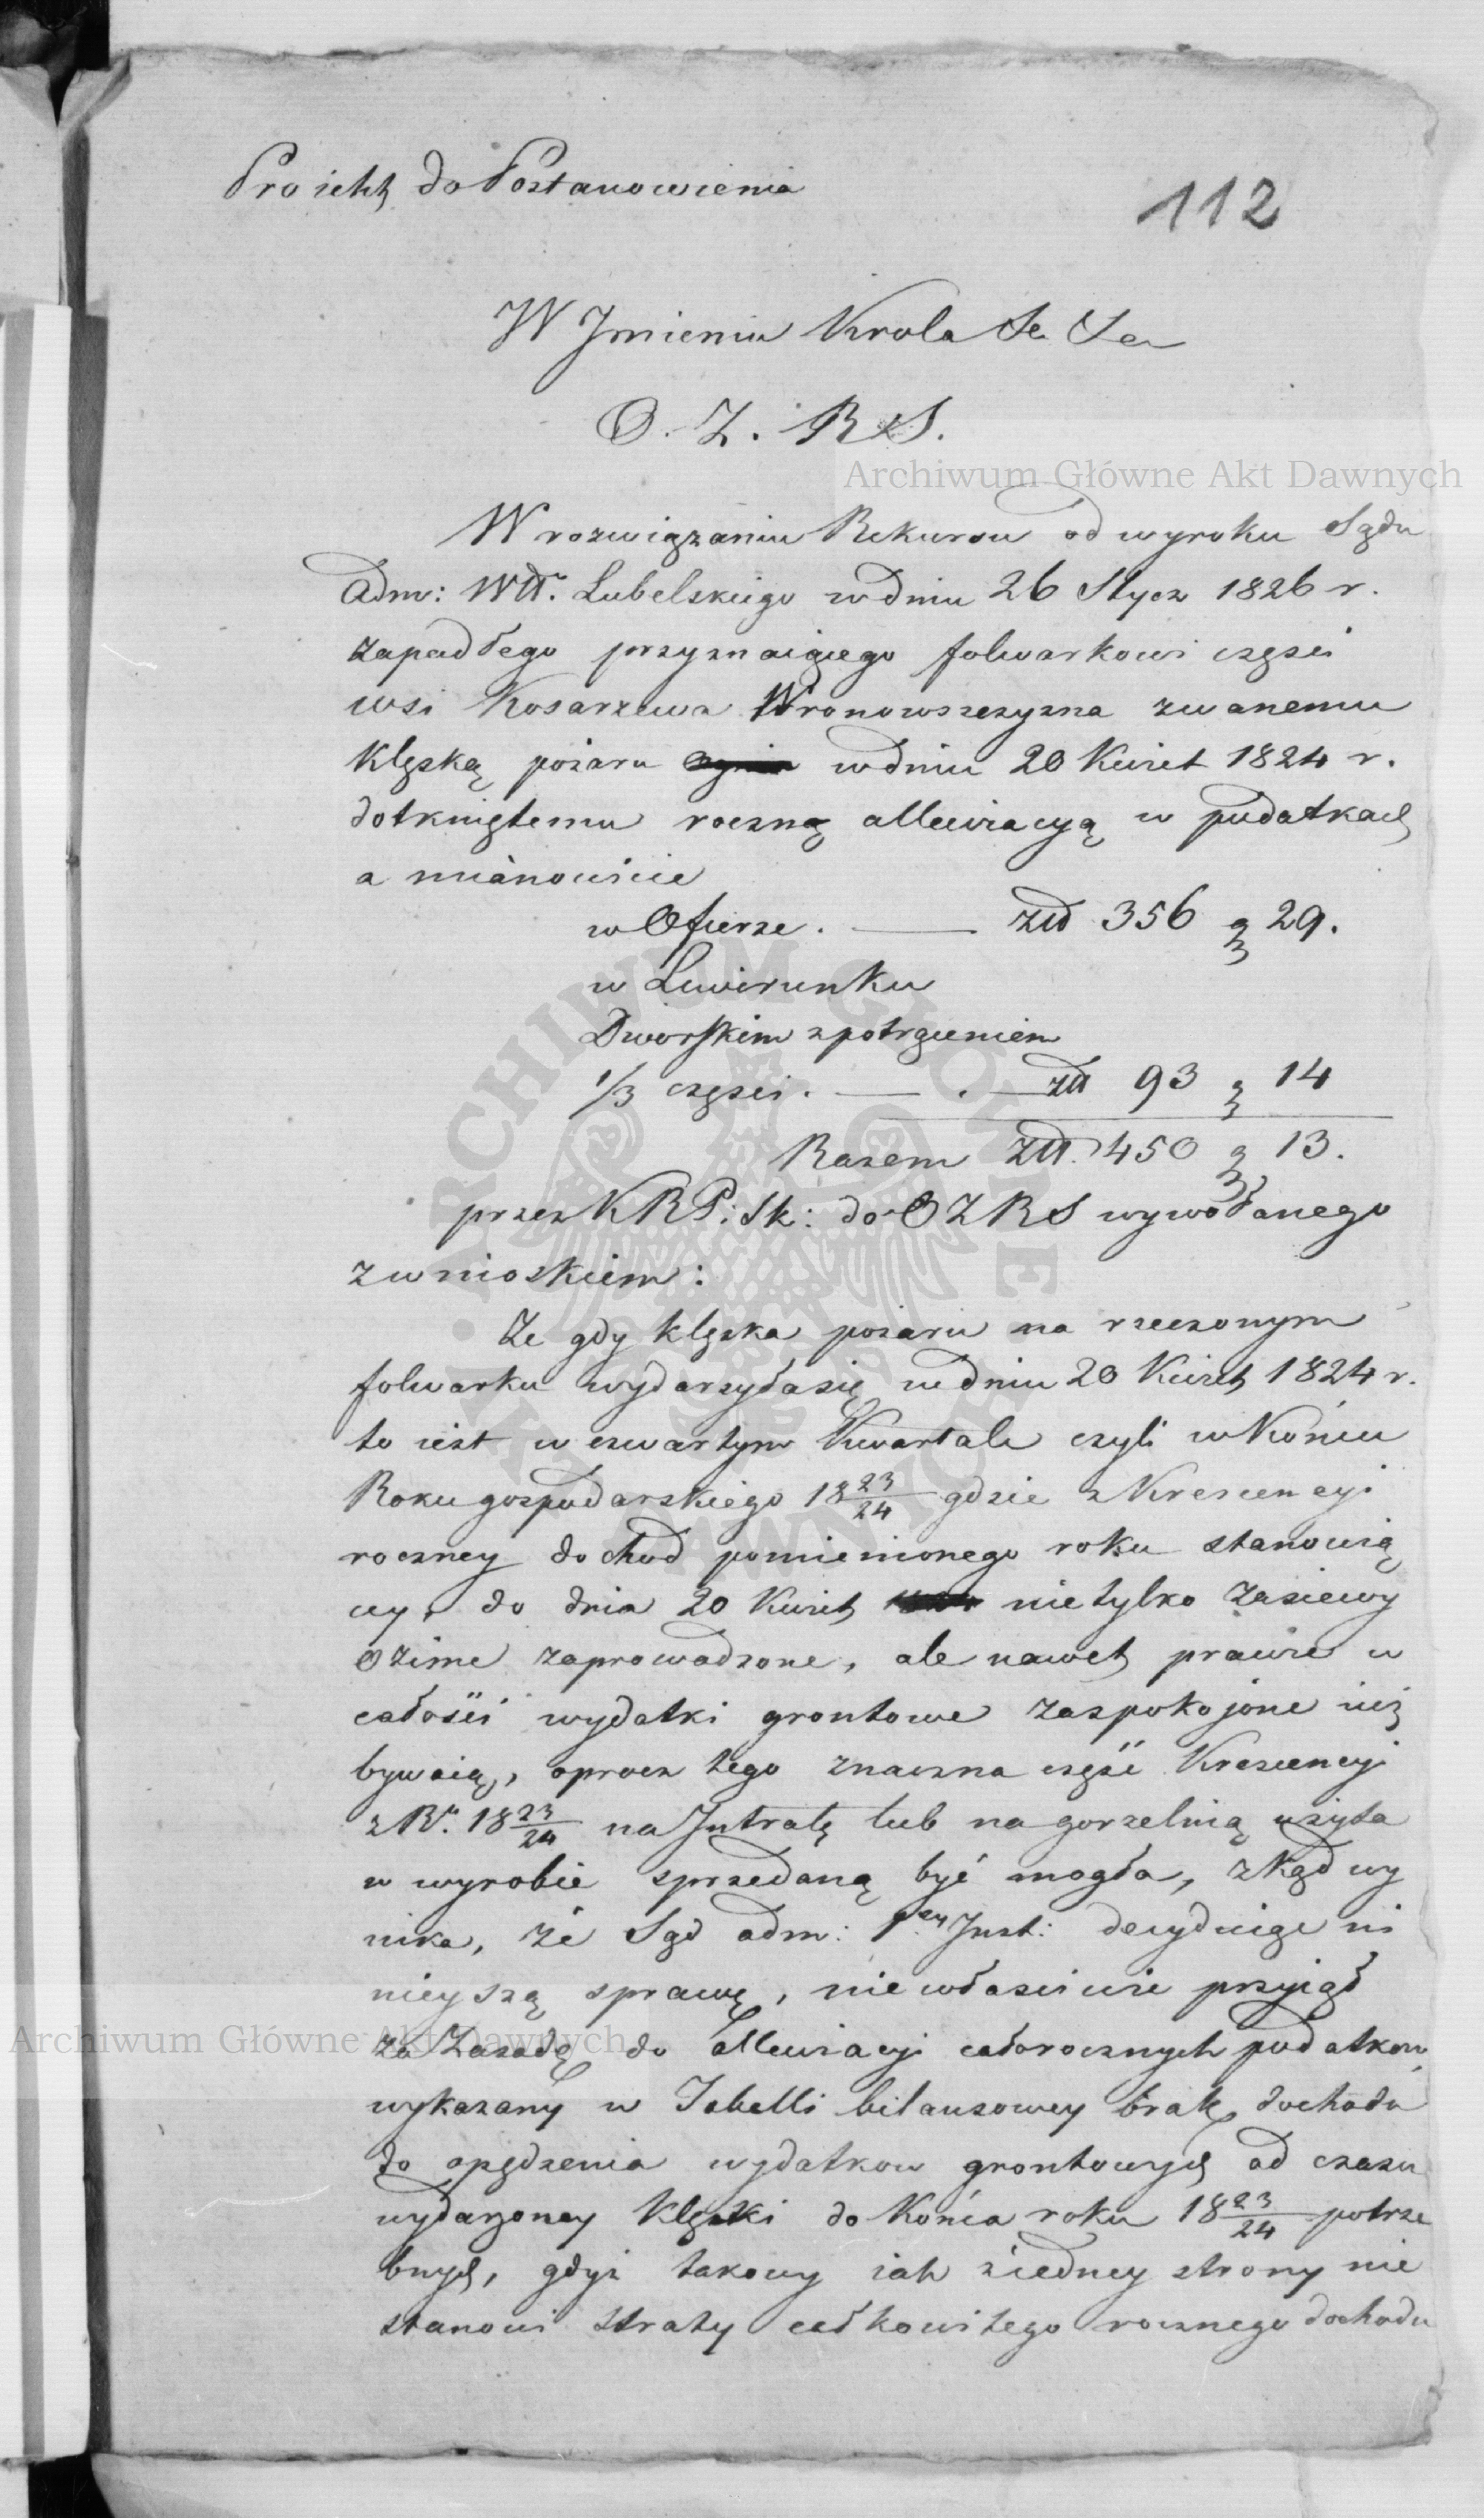 Proiekt do Postanowienia
112
W Jmieniu Krola &c &c
O. Z. R S.
W rozwiązaniu Rekursu od wyroku Sądu
Adm: Wtt. Lubelskiego w dniu 26 Stycz 1826 r.
zapadłego przyznaiącego folwarkowi części
wsi Kosarzewa Wronowszczyzna zwanemu
klęską pożaru w dniu 20 Kwiet 1824 r.
dotkniętemu roczną allewiacyą w podatkach
a mianowicie
w Ofierze . — złł 356 g 29.
w Liwerunku
Dworskim z potrąceniem
1/3 części . — . — złł 93 g 14
Razem złł. 450 g 13.
przez K R P: Sk: do O Z R S wywołanego
z wnioskiem:
Ze gdy klęska pożaru na rzeczonym
folwarku wydarzyła się w dniu 20 Kwiet 1824 r.
to iest w czwartym Kwartale czyli w Końcu
Roku gospodarskiego 18 23/24 gdzie z Krescencyi
roczney dochod pomienionego roku stanowią
cey, do dnia 20 Kwiet nietylko zasiewy
ozime zaprowadzone, ale nawet prawie w
całości wydatki grontowe zaspokojone iuż
bywaią, oprocz tego znaczna część Krescencyi
z Ru. 18 23/24 na Jntratę lub na gorzelnią użyta
w wyrobie sprzedaną być mogła, zkąd wy
nika, że Sąd adm: 1ey Jnst: decyduiąc ni
nieyszą sprawę, niewłaściwie przyiął
za Zasadę do allewiacyi całorocznych podatkow
wykazany w Tabelli bilansowey brak dochodu
do opędzenia wydatkow grontowych od czasu
wydarzoney klęski do Końca roku 18 23/24 potrze
bnych, gdyż takowy iak z iedney strony nie
stanowi straty całkowitego rocznego dochodu
Archiwum Główne Akt Dawnych
Archiwum Główne Akt Dawnych
ARCHIWUM GŁÓWNE AKT DAWNYCH